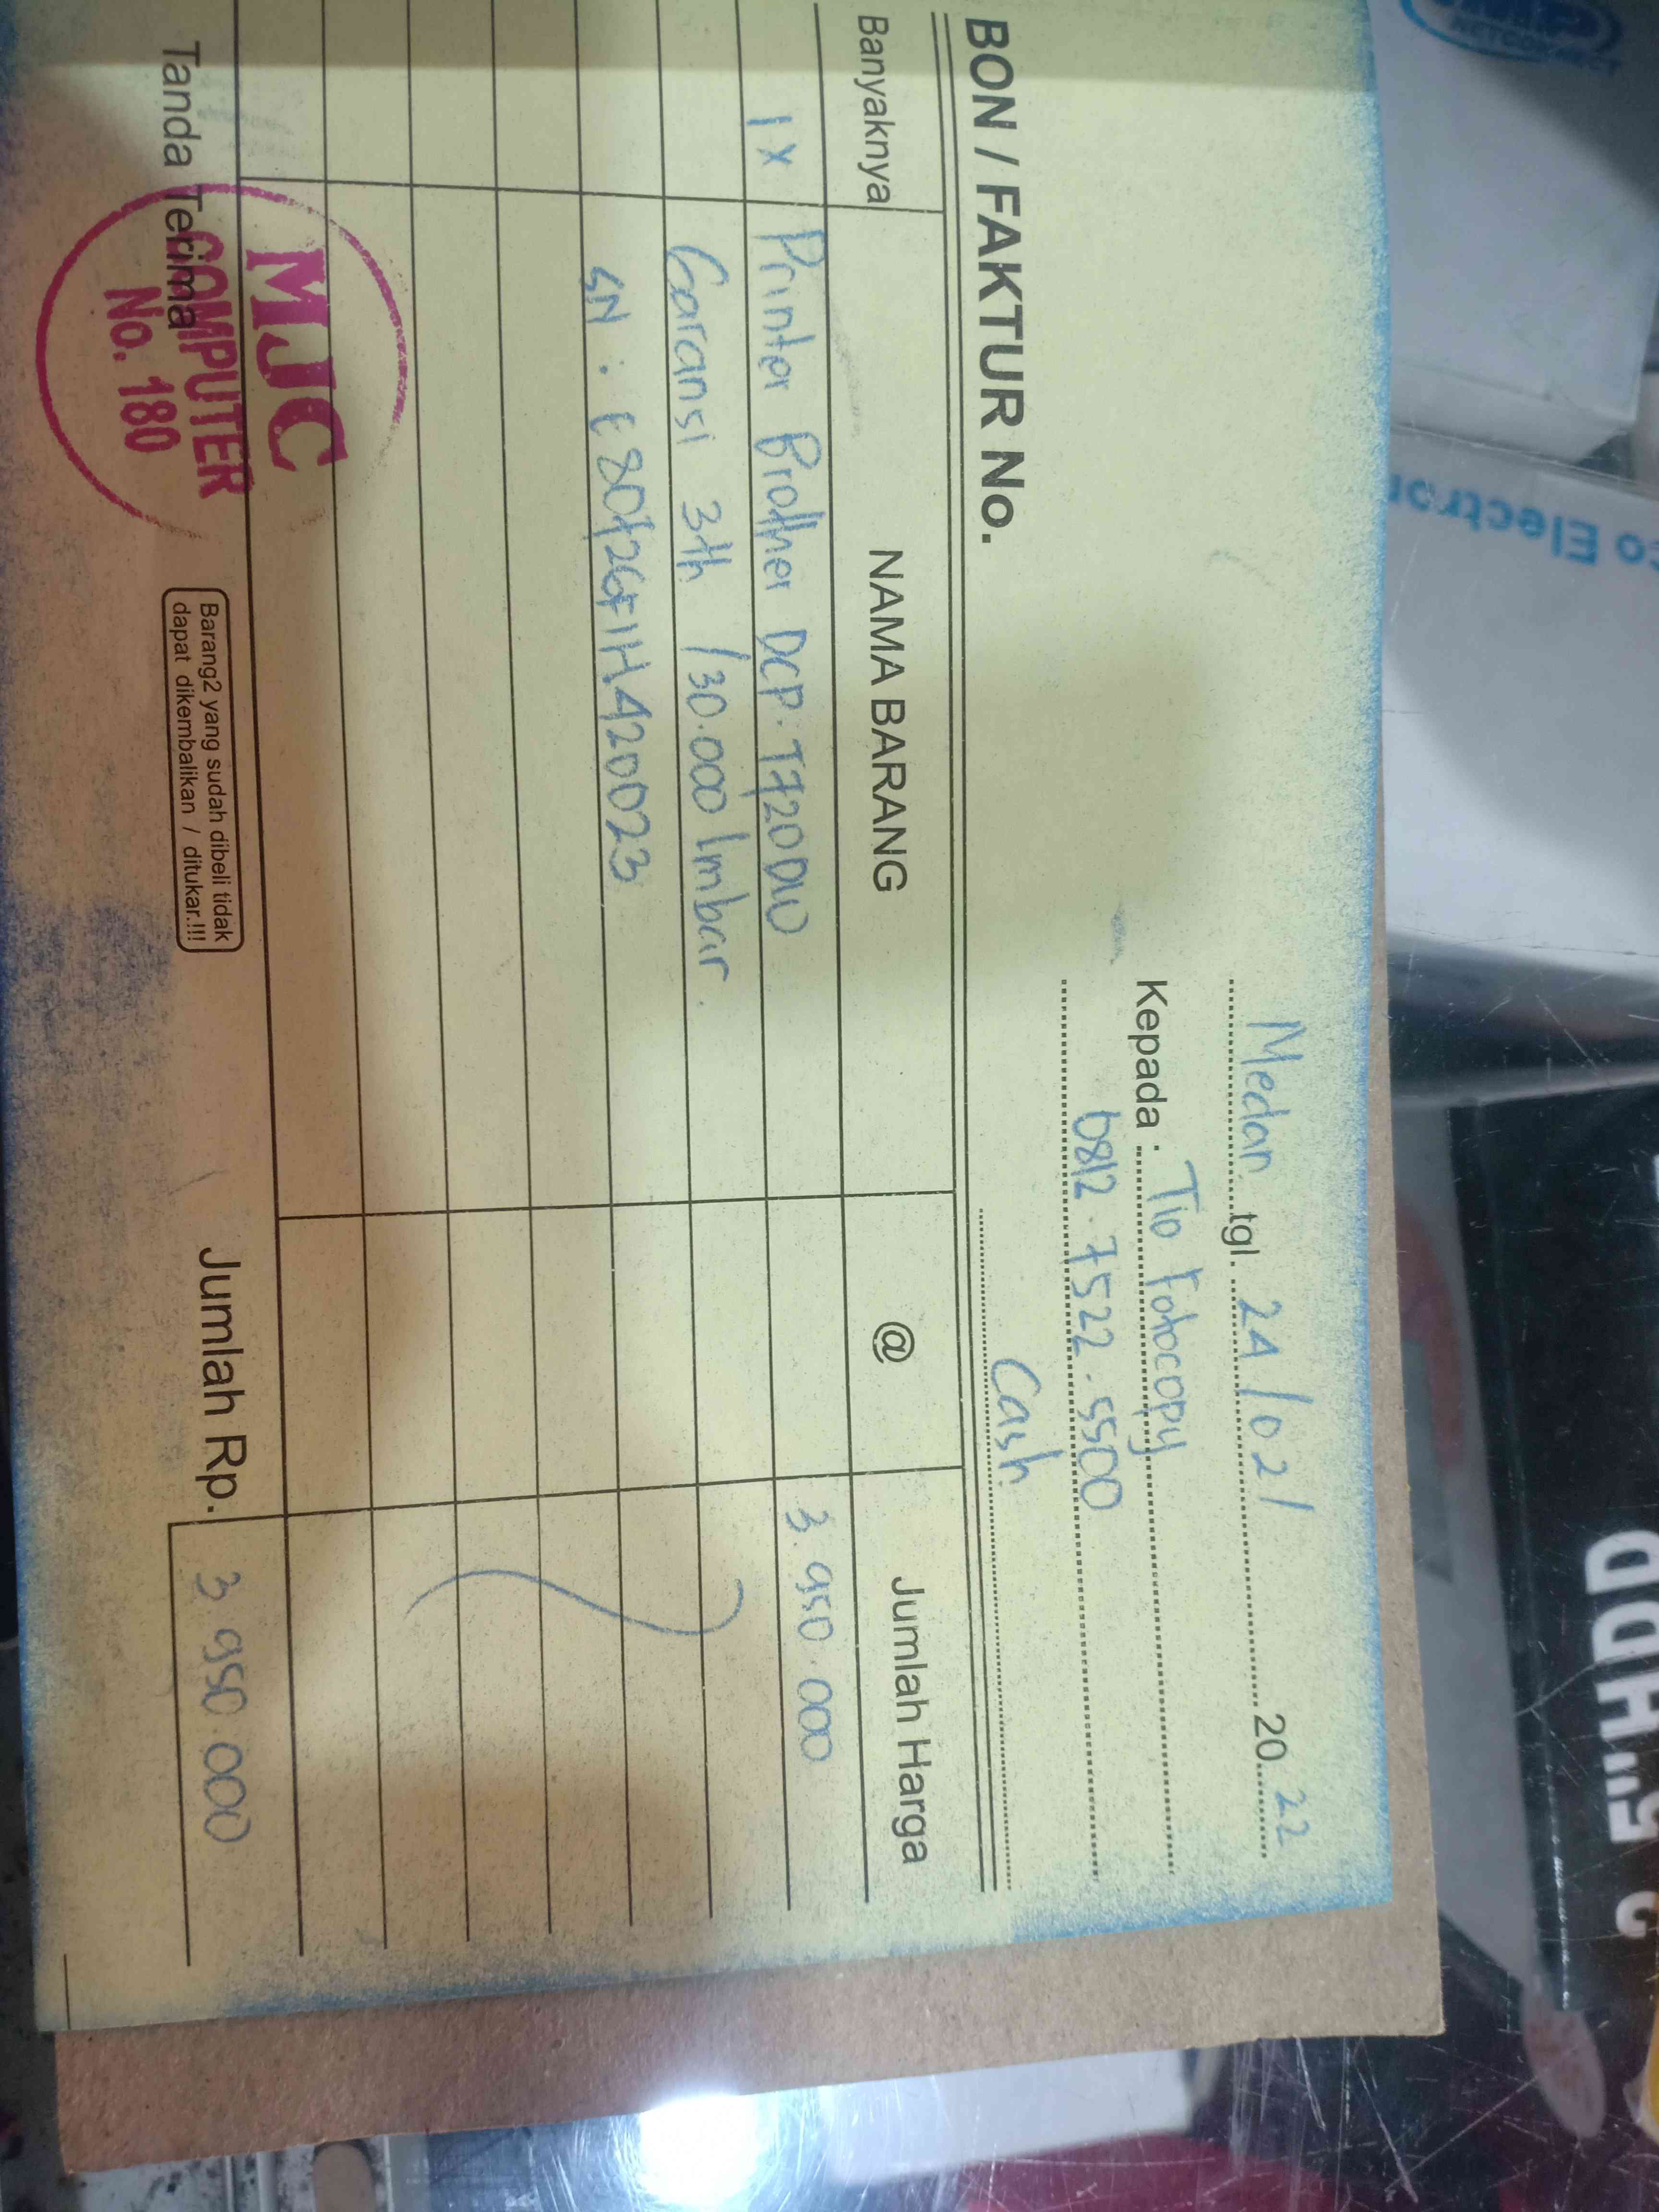 Medan tgl. 24/02/ 2022
Kepada : Tio Fotocopy
0812.7522.5500
BON / FAKTUR No.
Cash
Banyaknya NAMA BARANG @ Jumlah Harga
1 x Printer Brother DCP.T720DW 3.950.000
Garansi 3th /30.000 lmbar.
SN : E80726F1H420023
Tanda Terima
Jumlah Rp. 3.950.000
MJC
COMPUTER
No. 180
Barang2 yang sudah dibeli tidak
dapat dikembalikan / ditukar.!!!
o Electron